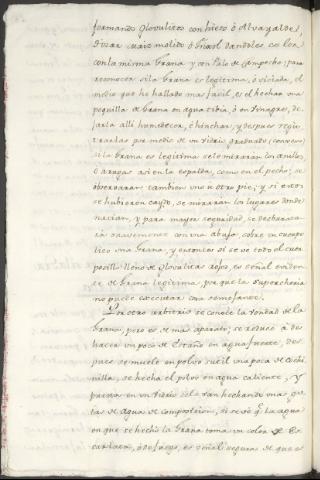 formando Globulitos con hiero ò Alvayaldes,
ò usar maiz molido ò frixol dandoles color
con la misma Grana y con Palo de Campeche; para
reconocer si la grana es legitima, ò viciada, el
medio que he hallado mas facil, es el hechar una
poquilla de Grana en agua tibia, ò en Vinagre, de
jarla alli humedecer, è hinchar, y despues regis
trarlas por medio de un vidrio graduado (convexo)
si la grana es legitima se le miraràn los anillos,
ò arrugas asi en la espalda, como en el pecho; se
observaràn tambien uno u otro pie; y si estos
se hubieren caydo, se miraràn los lugares donde
nacian, y para mayor seguridad, se desbaratarà
suavemente con una abuja, sobre un cuerpo
lico una Grana, y entonces si se ve todo el cuer
pecillo lleno de Globulitos rojos, es señal eviden
te de Grana legitima, por que la Supercheria
no puede executar cosa semejante.
Por otro arbitrio se conoce la bondad de la
Grana, pero es de mas aparato; se reduce à des
hacer un poco de Estaño en agua fuerte, des
pues se muele en polvo sutil una poca de Cochi
nilla, se hecha el polvo en agua caliente, y
puesta en un vidrio se le van hechando unas go
tas de agua de composicion, si se vè q. la agua
en que se hechò la Grana toma un color de Es
carlata, ò de fuego, es señal segura de que es